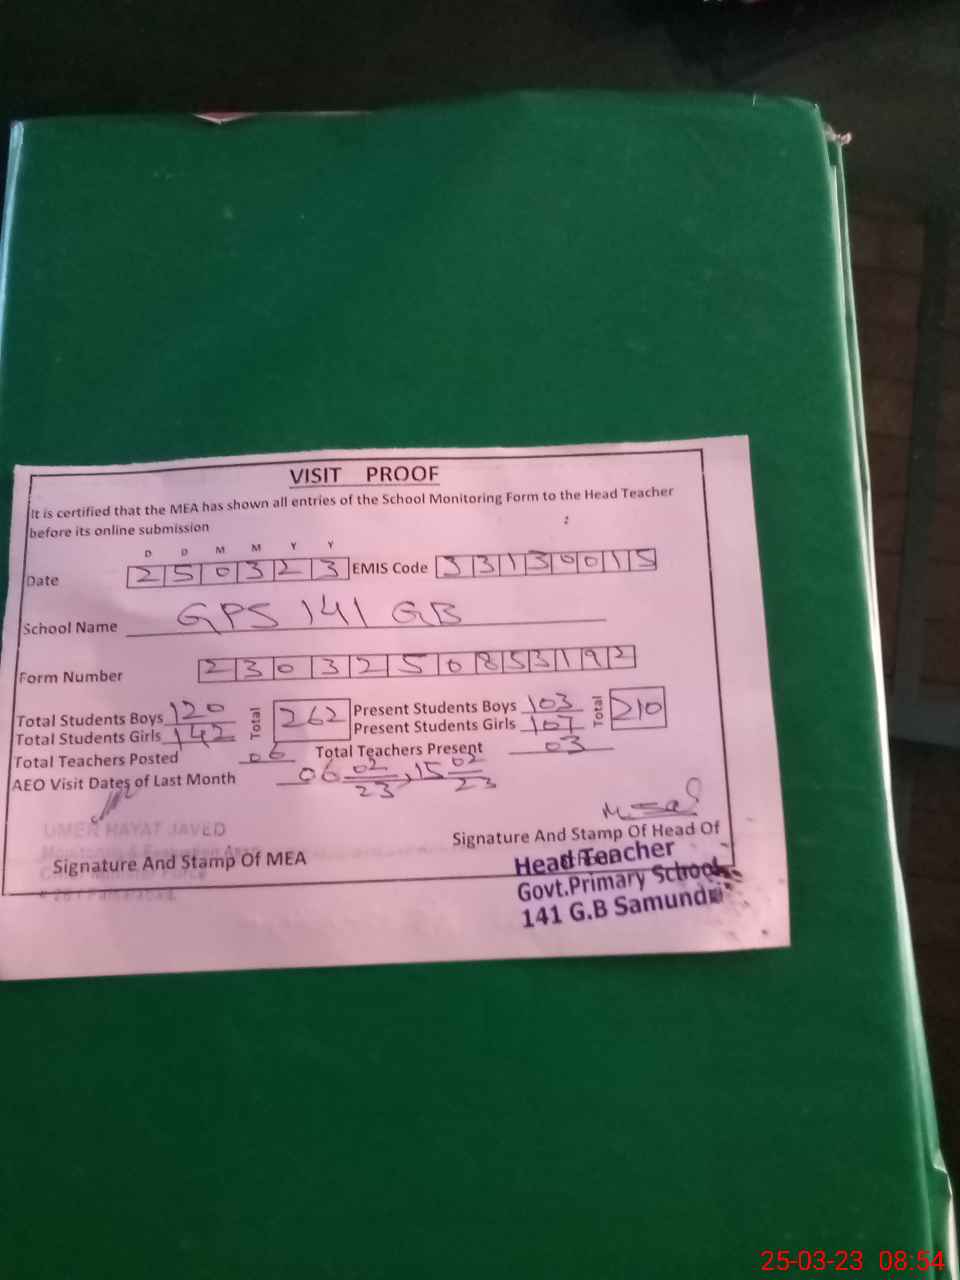 VISIT PROOF
It is certified that the MEA has shown all entries of the School Monitoring Form to the Head Teacher
before its online submission
D D M M Y Y
Date 250323 EMIS Code 33130015
School Name GPS 141 GB
Form Number 2303250853192
Total Students Boys 120 Total 262 Present Students Boys 103 Total 210
Total Students Girls 142 Present Students Girls 107
Total Teachers Posted 06 Total Teachers Present 03
AEO Visit Dates of Last Month 06 02/23, 15 02/23
UMER HAYAT JAVED
Signature And Stamp Of MEA
Signature And Stamp Of Head Of
Head Teacher
Govt.Primary School
141 G.B Samundri
25-03-23 08:54